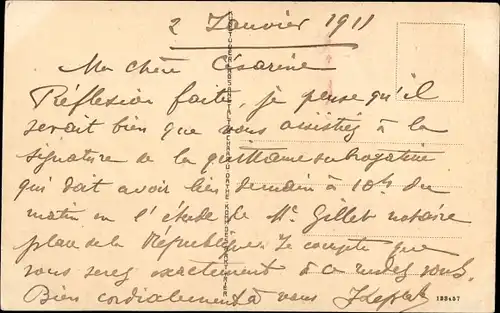 2 Janvier 1911
Ma chère Césarine
Réflexion faite, je pense qu'il
serait bien que vous assistiez à la
signature de la quittance subrogative
qui doit avoir lieu demain à 10h du
matin en l'étude de Me Gillet notaire
place de la République. Je compte que
vous serez exactement à ce rendez vous.
Bien cordialement à vous
133457